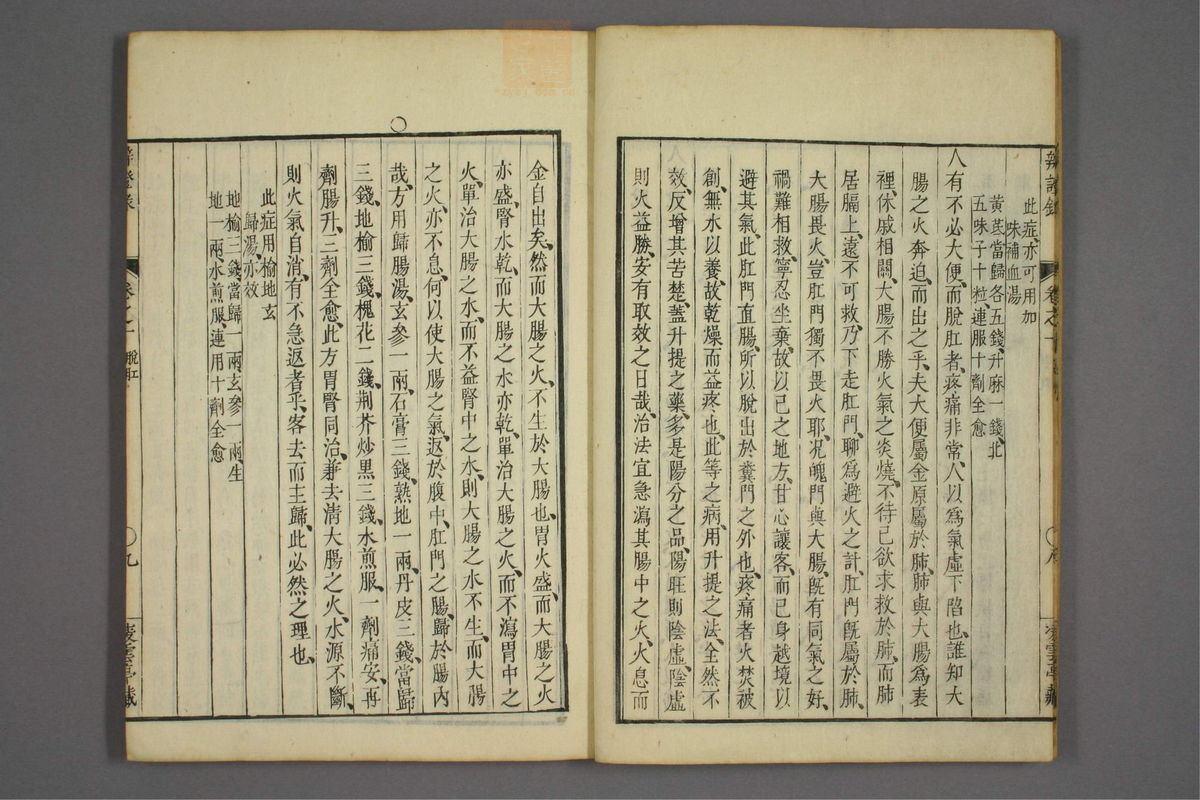 辨證錄 卷之十 八 凌雲亭藏
此症亦可用加
味補血湯
黃芪當歸各五錢升麻一錢北
五味子十粒連服十劑全愈
人有不必大便而脫肛者疼痛非常人以爲氣虛下陷也誰知大
腸之火奔迫而出之乎夫大便屬金原屬於肺肺與大腸爲表
裡休戚相關大腸不勝火氣之炎燒不待已欲求救於肺而肺
居膈上遠不可救乃下走肛門聊爲避火之計肛門旣屬於肺
大腸畏火豈肛門獨不畏火耶况魄門與大腸旣有同氣之好
禍難相救寧忍坐棄故以已之地方甘心讓客而已身越境以
避其氣此肛門直腸所以脫出於糞門之外也疼痛者火焚被
創無水以養故乾燥而益疼也此等之病用升提之法全然不
效反增其苦楚蓋升提之藥多是陽分之品陽旺則陰虛陰虛
則火益勝安有取效之日哉治法宜急瀉其腸中之火火息而
金自出矣然而大腸之火不生於大腸也胃火盛而大腸之火
亦盛腎水乾而大腸之水亦乾單治大腸之火而不瀉胃中之
火單治大腸之水而不益腎中之水則大腸之水不生而大腸
之火亦不息何以使大腸之氣返於腹中肛門之腸歸於腸內
哉方用歸腸湯玄參一兩石膏三錢熟地一兩丹皮三錢當歸
三錢地榆三錢槐花二錢荆芥炒黑三錢水煎服一劑痛安再
劑腸升三劑全愈此方胃腎同治兼去淸大腸之火水源不斷
則火氣自消有不急返者乎客去而主歸此必然之理也
此症用榆地玄
歸湯亦效
地榆三錢當歸一兩玄參一兩生
地一兩水煎服連用十劑全愈
脫肛 九 凌雲亭藏